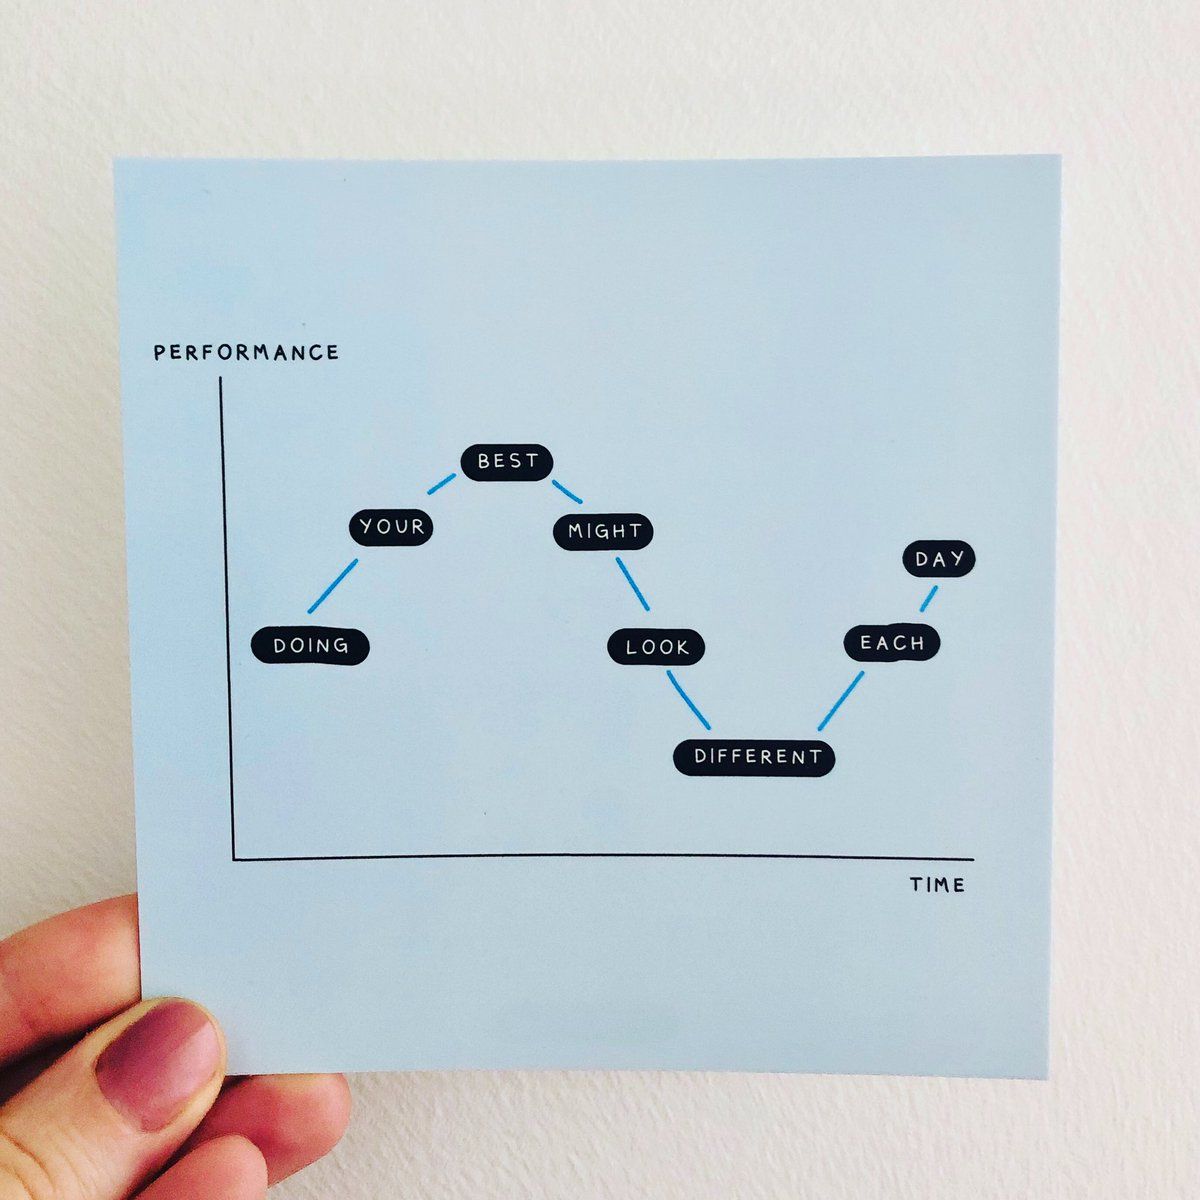 PERFORMANCE
DOING
YOUR
BEST
MIGHT
LOOK
DIFFERENT
EACH
DAY
TIME